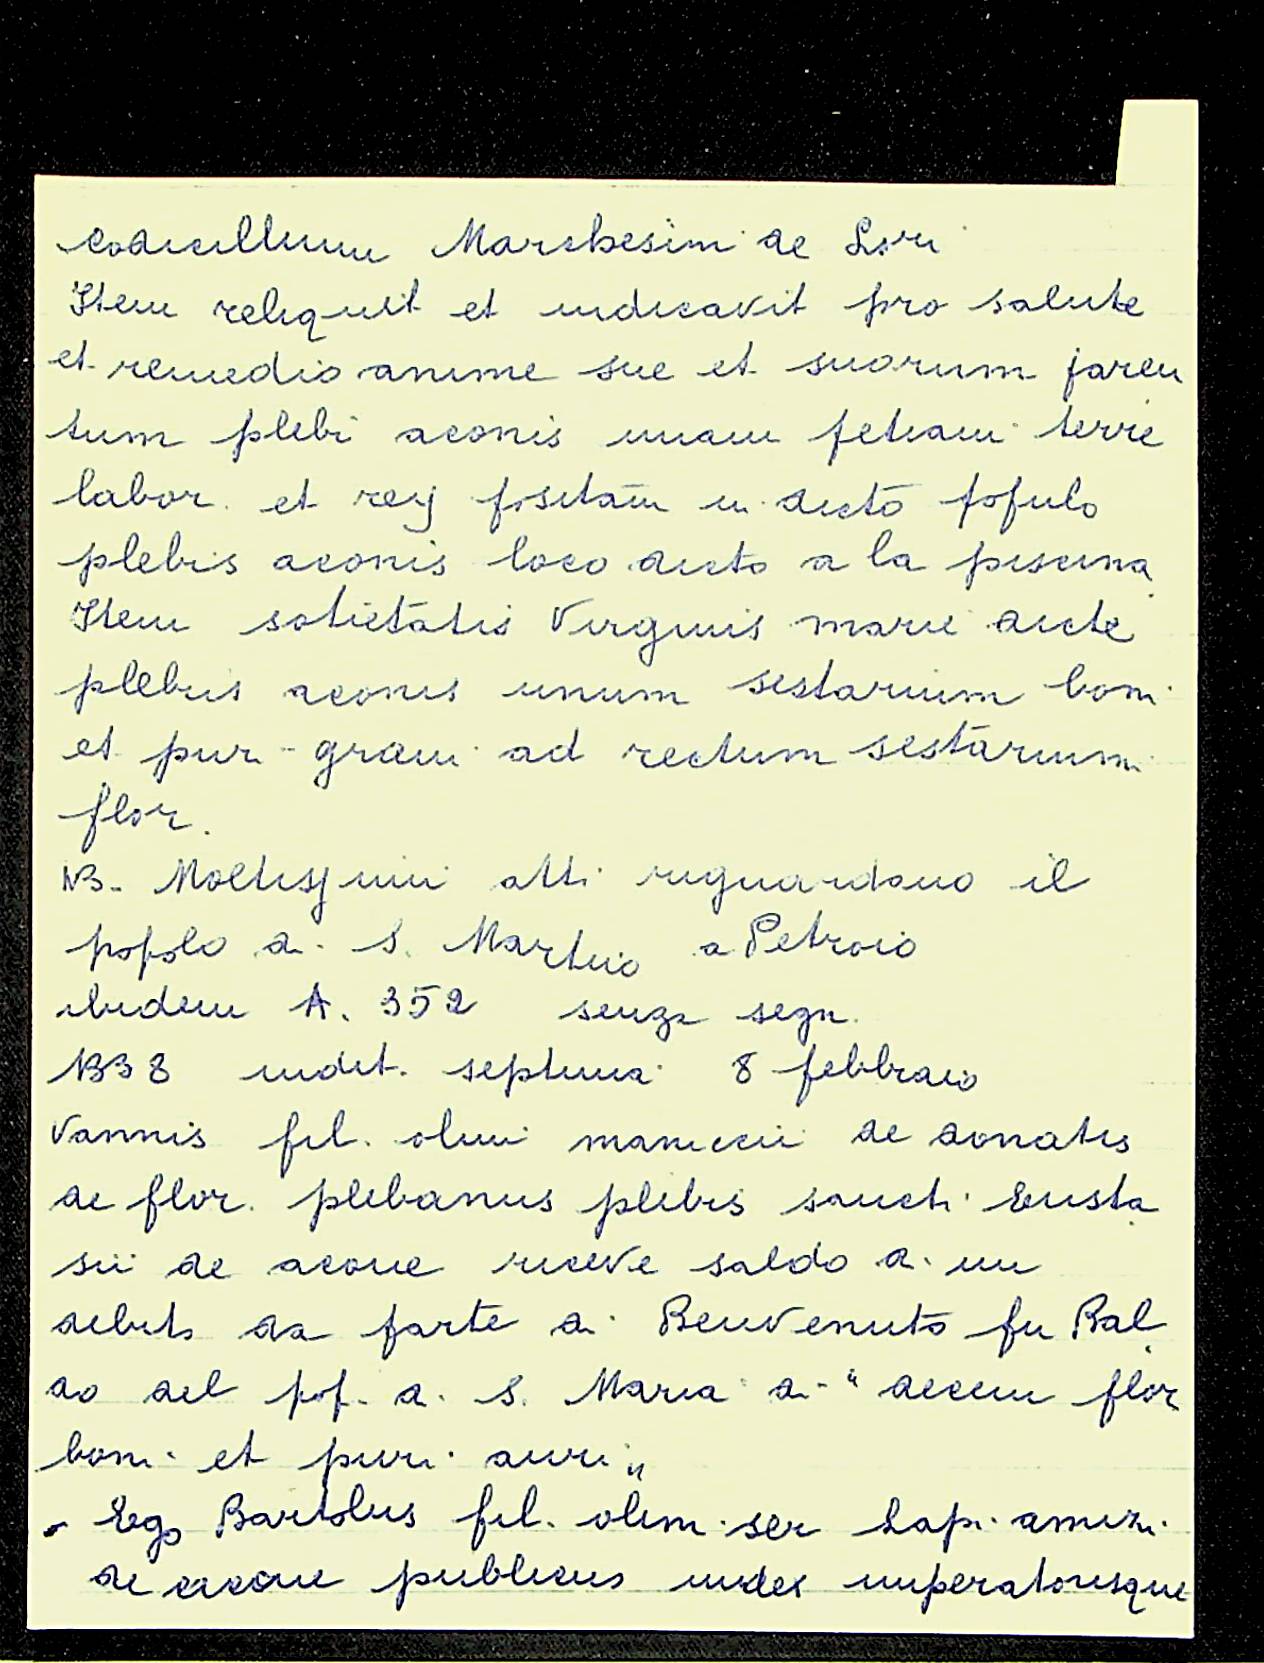 codicillum Marchesini de Lori
Item reliquit et iudicavit pro salute
et remedio anime sue et suorum paren
tum plebi aconis unam petiam terre
labor. et rey positam in dicto popolo
plebis aconis loco dicto a la piscina
Item sotietatis Virginis marie dicte
plebis aconis unum sestarium boni
et puri grani ad rectum sestarium
flor.
NB. Moltissimi atti riguardano il
popolo di S. Martino a Petroio
ibidem A. 352 senza segn.
1338 indit. septima 8 febbraio
Vannis fil. olim maneccii de donatis
de flor. plebanus plebis sancti Eusta
sii de acone riceve saldo di un
debito da parte di Benvenuto fu Bal
do del pop. di S. Maria di "decem flor
boni et puri auri"
Ego Bartolus fil. olim ser Lapi amizi
de acone publicus iudex imperatorisque